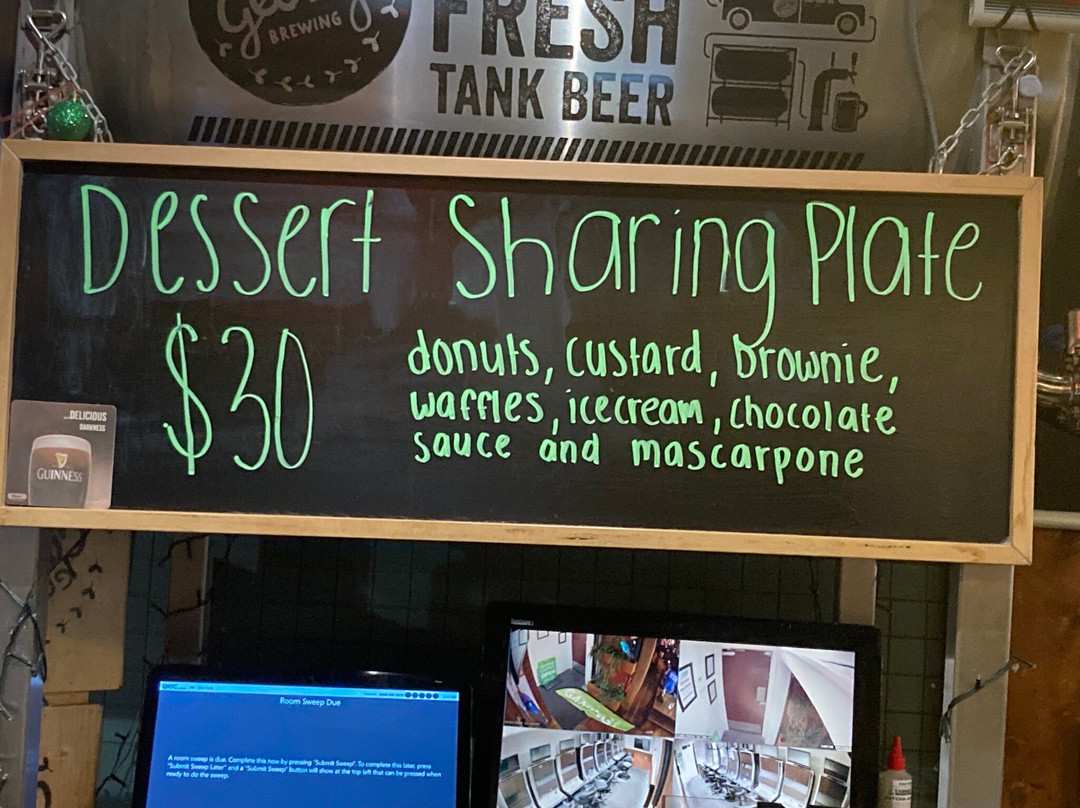 BREWING
FRESH
TANK BEER
Dessert Sharing Plate
$30
donuts, custard, brownie,
waffles, icecream, chocolate
sauce and mascarpone
...DELICIOUS
DARKNESS
GUINNESS
Room Sweep Due
A room sweep is due. Complete this now by pressing "Submit Sweep". To complete this later, press
"Submit Sweep Later" and a "Submit Sweep" Button will show at the top left that can be pressed when
ready to do the sweep.